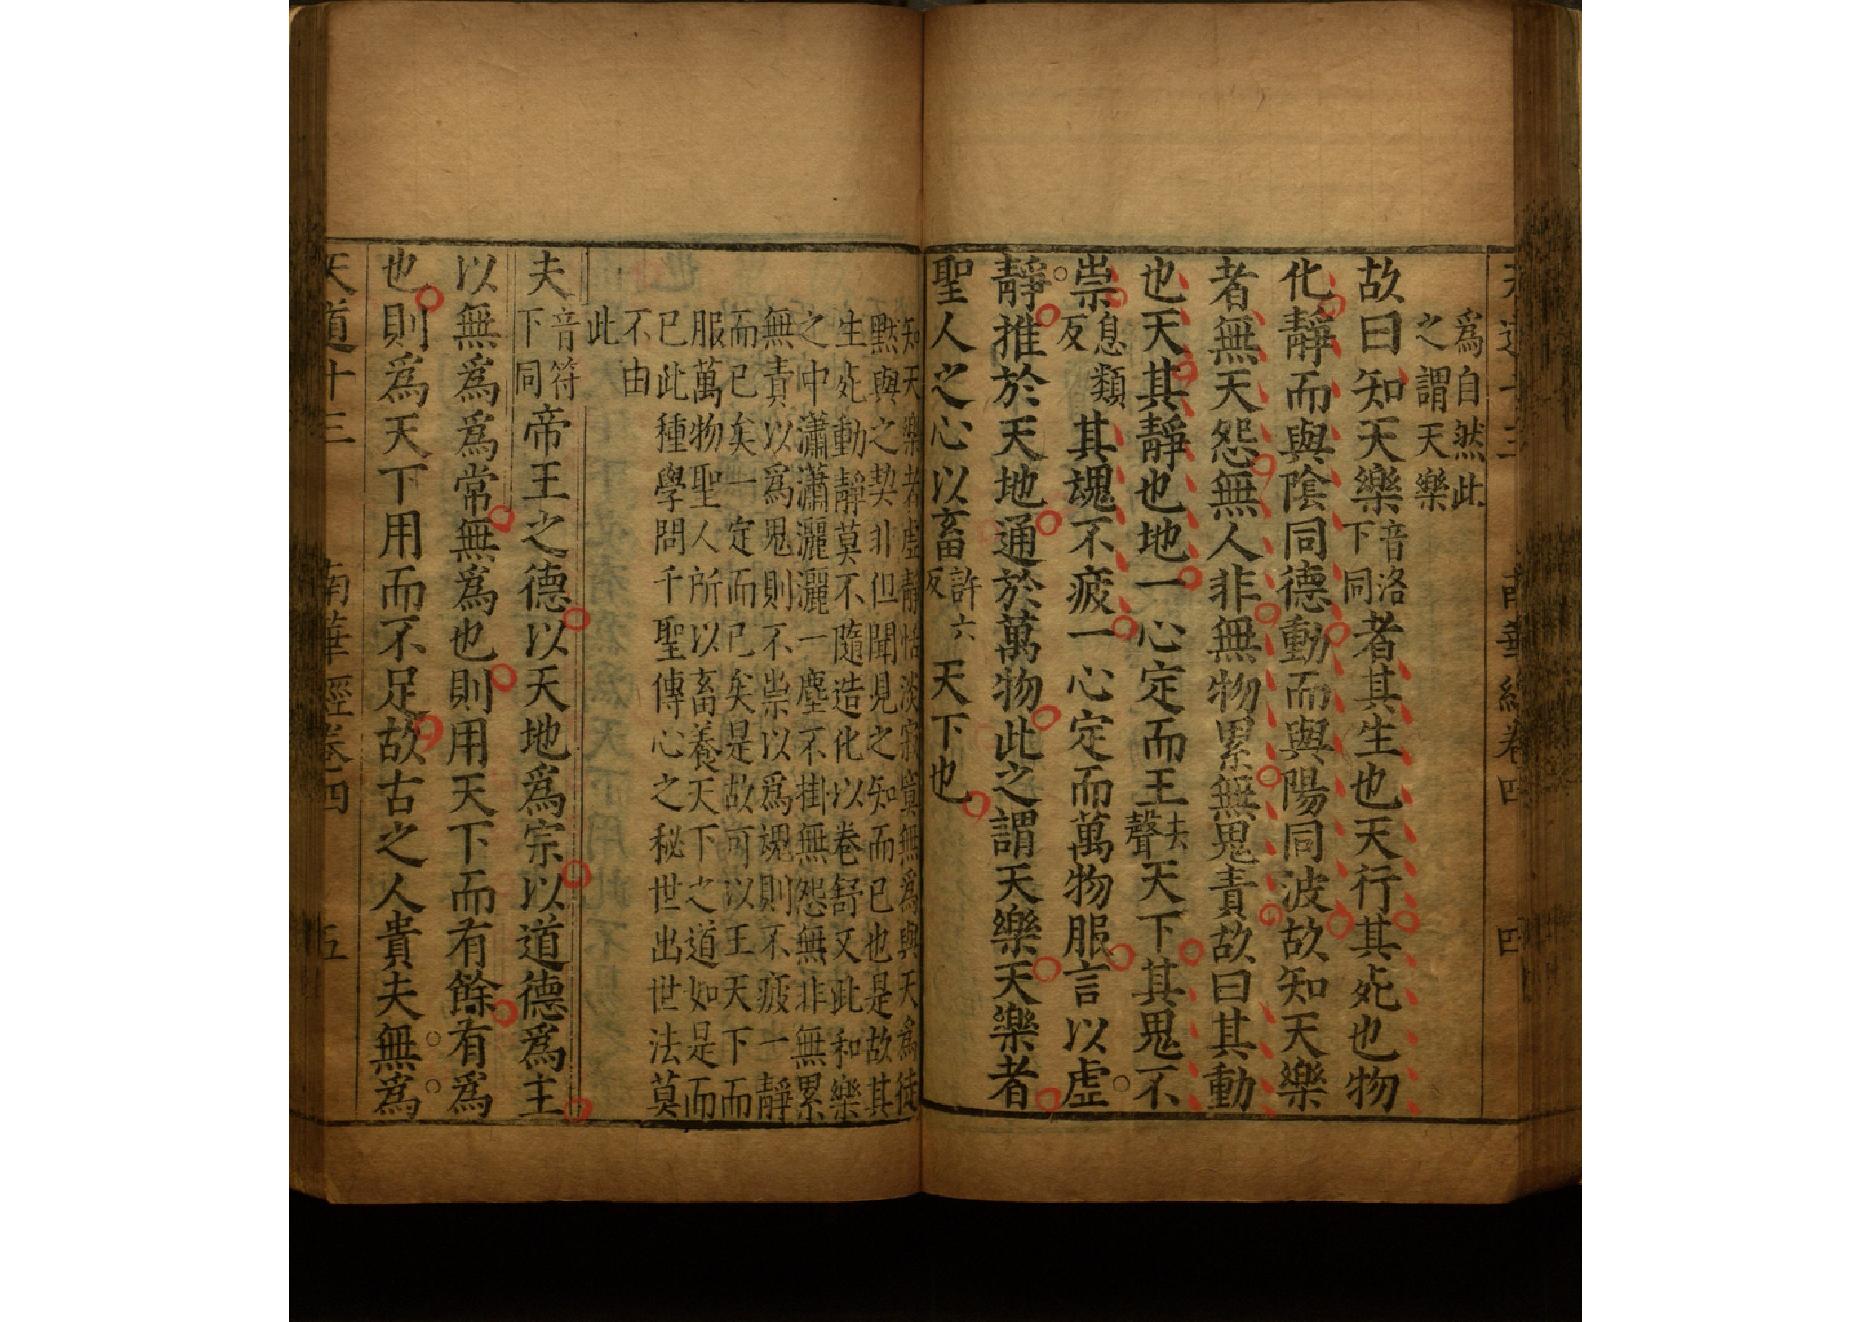 天道十三 南華經卷四 四
爲自然此
之謂天樂
故曰知天樂音洛下同者其生也天行其死也物
化靜而與陰同德動而與陽同波故知天樂
者無天怨無人非無物累無鬼責故曰其動
也天其靜也地一心定而王去聲天下其鬼不
祟息類反其魂不疲一心定而萬物服言以虛
靜推於天地通於萬物此之謂天樂天樂者
聖人之心以畜許六反天下也
知天樂者虛靜恬淡寂寞無爲與天爲徒
默與之契非但聞見之知而已也是故其
生死動靜莫不隨造化以卷舒又此和樂
之中瀟瀟灑灑一塵不掛無怨無非無累
無責以爲鬼則不祟以爲魂則不疲一靜
而已矣一定而已矣是故可以王天下而
服萬物聖人所以畜養天下之道如是而
已此種學問千聖傳心之秘世出世法莫
不由
此
夫音符下同帝王之德以天地爲宗以道德爲主
以無爲爲常無爲也則用天下而有餘有爲
也則爲天下用而不足故古之人貴夫無爲
天道十三 南華經卷四 五